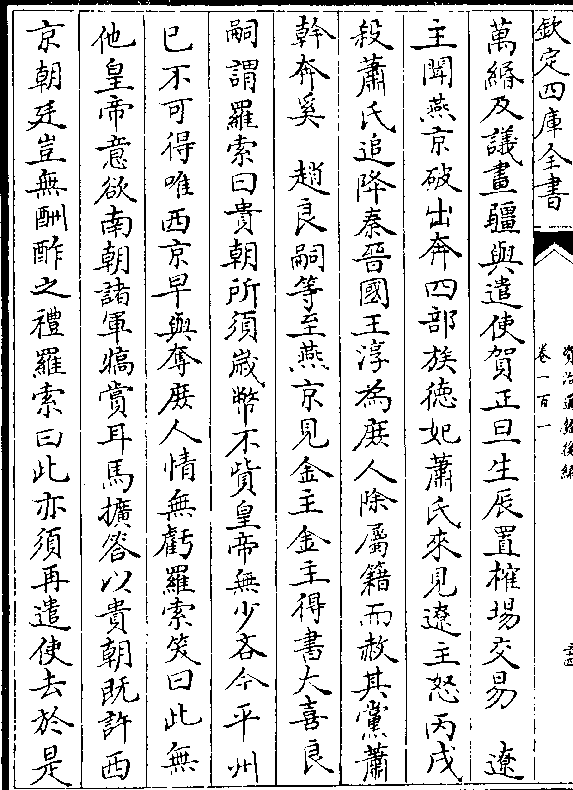 欽定四庫全書
資治通鑑後編
卷一百一
萬緡及議畫疆與遣使賀正旦生辰置榷場交易　遼
主聞燕京破出奔四部族德妃蕭氏來見遼主怒丙戌
殺蕭氏追降秦晉國王淳為庶人除屬籍而赦其黨蕭
幹奔奚　趙良嗣等至燕京見金主金主得書大喜良
嗣謂羅索曰貴朝所須歲幣不貲皇帝無少吝今平州
已不可得唯西京早與奪庶人情無虧羅索笑曰此無
他皇帝意欲南朝諸軍犒賞耳馬擴答以貴朝既許西
京朝廷豈無酬酢之禮羅索曰此亦須再遣使去於是